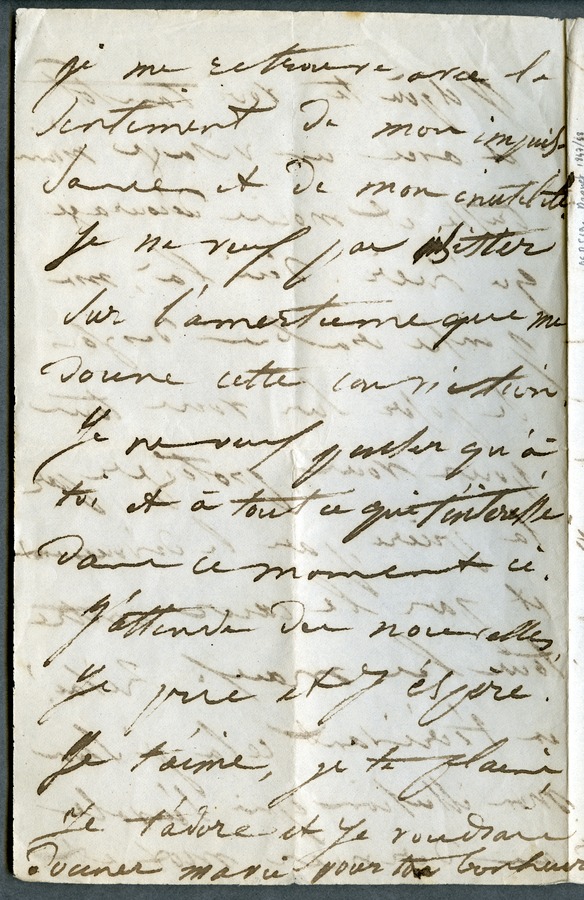 je me retrouve avec le
sentiment de mon impuis-
sance et de mon inutilité
Je ne veux pas insister
sur l'amertume que me
donne cette conviction.
Je ne veux penser qu'à
toi et à tout ce qui t'intéresse
dans ce moment ci.
J'attends des nouvelles,
Je prie et J'espère.
Je t'aime, je te plains
Je t'adore et Je voudrais
donner ma vie pour ton bonheur